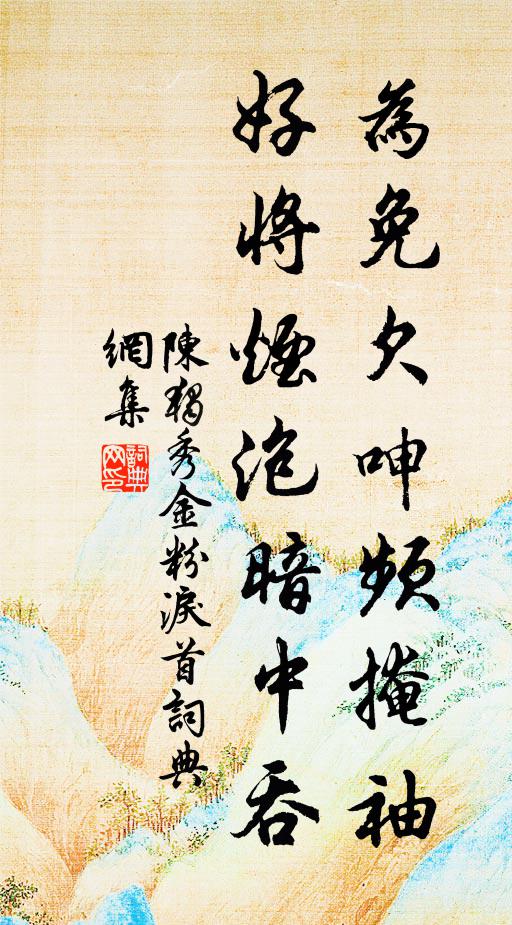 為免欠呻頻掩袖
好將煙泡暗中吞
陳獨秀金粉淚首詞典
網集
詞典網印